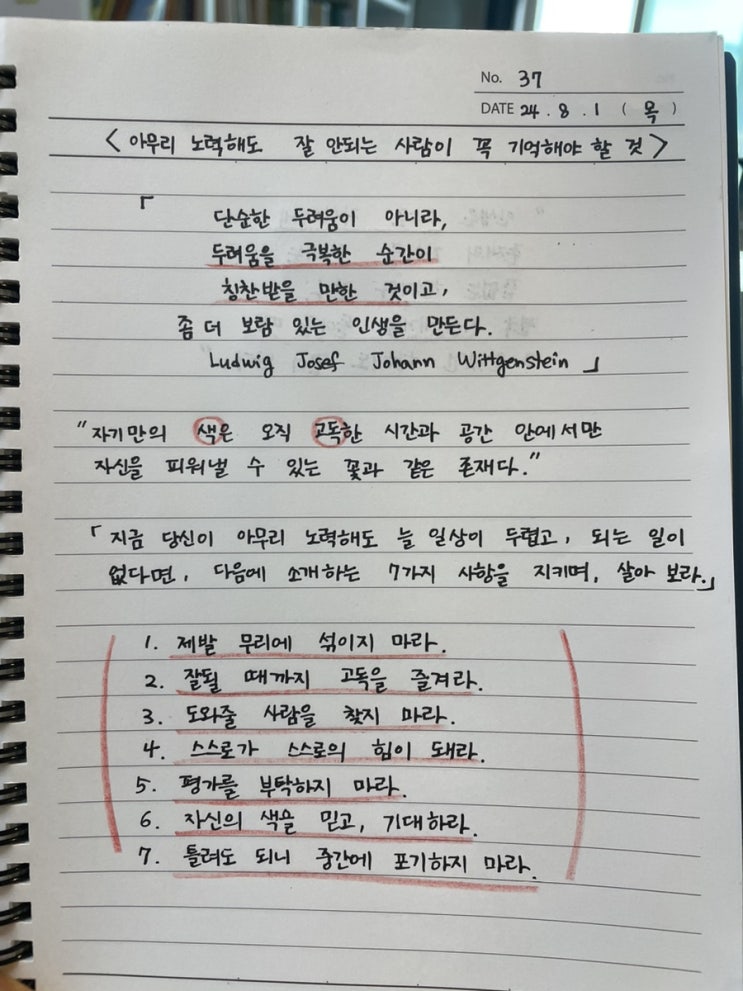 No. 37
DATE 24 . 8 . 1 ( 목 )
< 아무리 노력해도 잘 안되는 사람이 꼭 기억해야 할 것 >
「 단순한 두려움이 아니라,
두려움을 극복한 순간이
칭찬받을 만한 것이고,
좀 더 보람 있는 인생을 만든다.
Ludwig Josef Johann Wittgenstein 」
"자기만의 색은 오직 고독한 시간과 공간 안에서만
자신을 피워낼 수 있는 꽃과 같은 존재다."
「지금 당신이 아무리 노력해도 늘 일상이 두렵고, 되는 일이
없다면, 다음에 소개하는 7가지 사항을 지키며, 살아 보라.」
1. 제발 무리에 섞이지 마라.
2. 잘될 때까지 고독을 즐겨라.
3. 도와줄 사람을 찾지 마라.
4. 스스로가 스스로의 힘이 돼라.
5. 평가를 부탁하지 마라.
6. 자신의 색을 믿고, 기대하라.
7. 틀려도 되니 중간에 포기하지 마라.